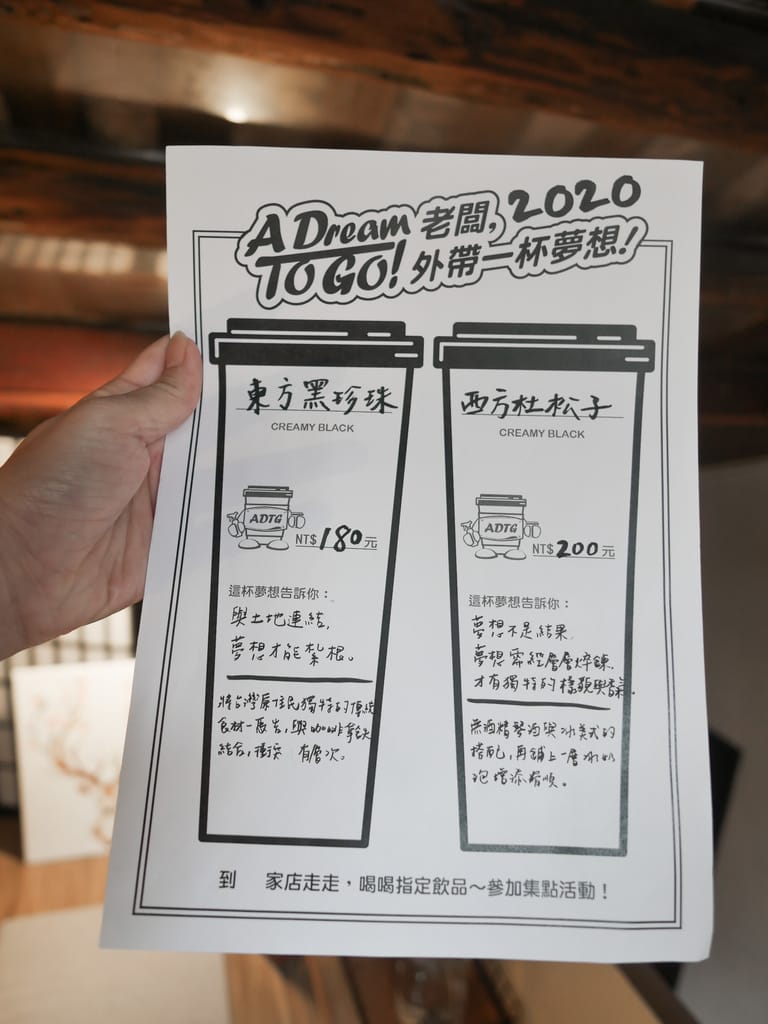 A Dream 老闆, 2020
TO GO! 外帶一杯夢想!
東方黑珍珠
CREAMY BLACK
ADTG
NT$ 180 元
這杯夢想告訴你：
與土地連結,
夢想才能紮根。
將台灣原住民獨特的傳統
食材一馬告,與咖啡拿鐵
結合,衝突 有層次。
西方杜松子
CREAMY BLACK
ADTG
NT$ 200 元
這杯夢想告訴你：
夢想不是結果,
夢想需經層層焠鍊,
才有獨特的樣貌與香氣.
無酒精琴酒與冰美式的
搭配,再鋪上一層冰奶
泡增添滑順。
到 家店走走，喝喝指定飲品～參加集點活動！